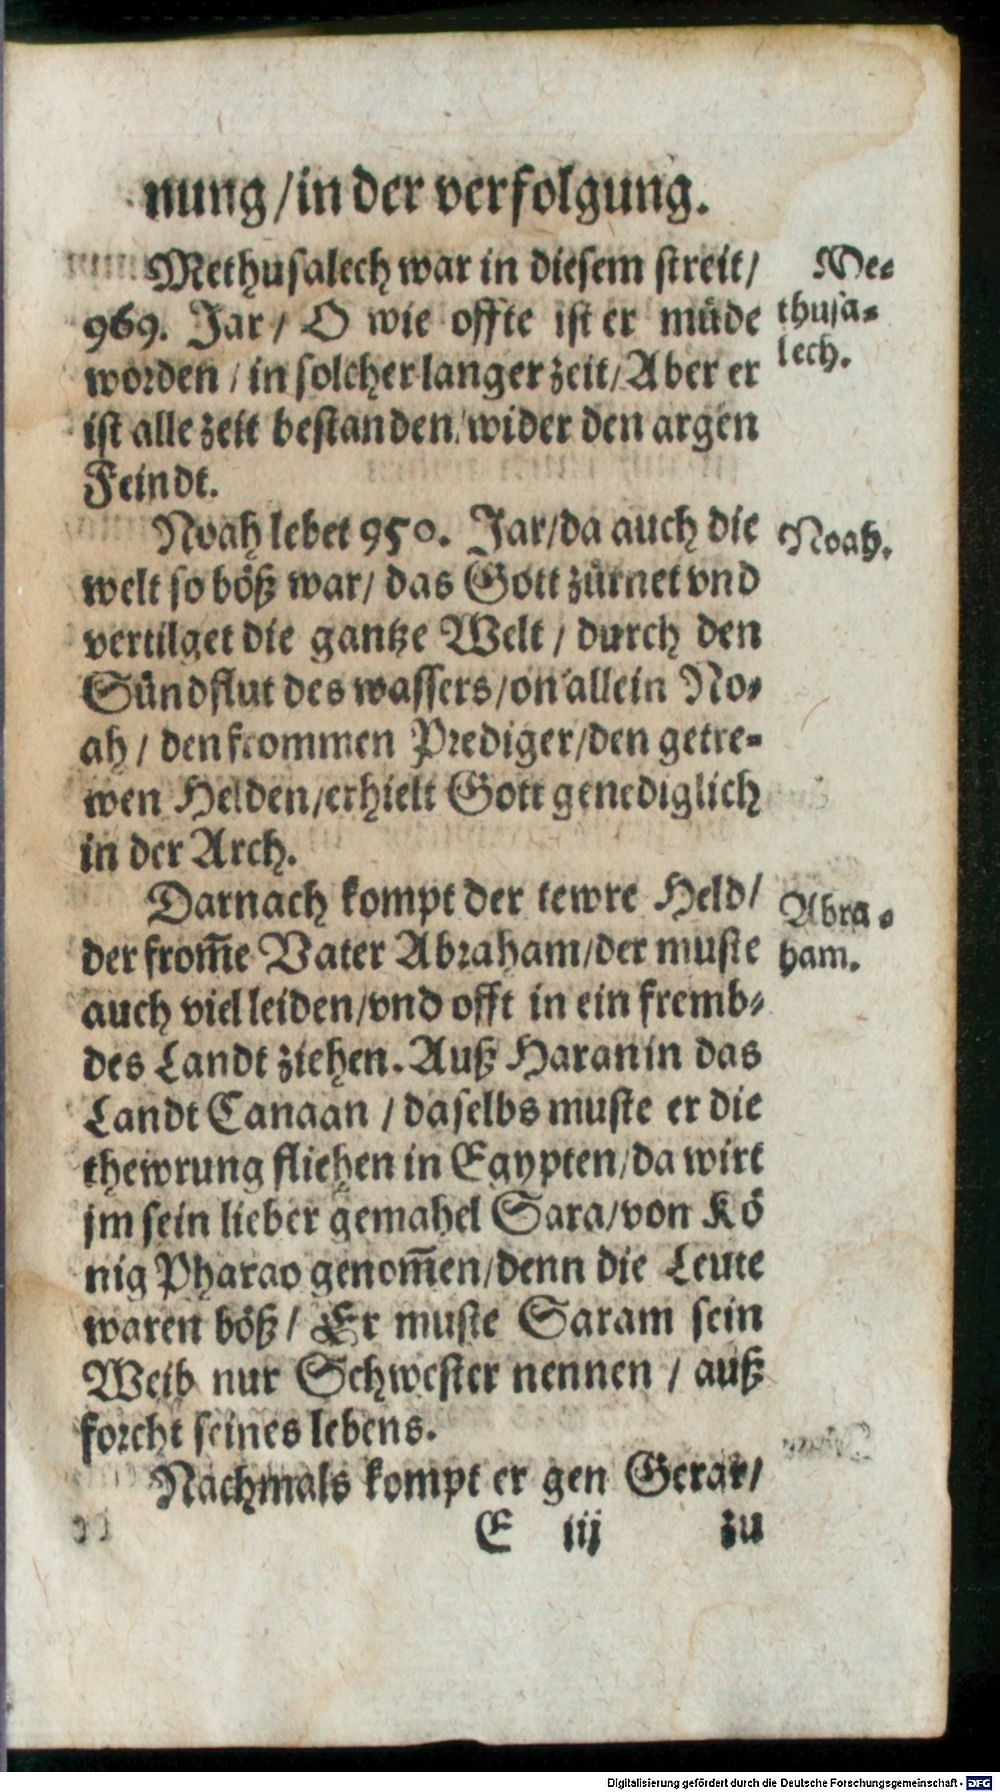 nung / in der verfolgung.
Methusalech war in diesem streit /
969. Jar / O wie offte ist er müde
worden / in solcher langer zeit / Aber er
ist alle zeit bestanden / wider den argen
Feindt.
Me=
thusa=
lech.
Noah lebet 950. Jar / da auch die
welt so böß war / das Gott zürnet vnd
vertilget die gantze Welt / durch den
Sündflut des wassers / on allein No=
ah / den frommen Prediger / den getre=
wen Helden / erhielt Gott genediglich
in der Arch.
Noah.
Darnach kompt der tewre Held /
der from̄e Vater Abraham / der muste
auch viel leiden / vnd offt in ein fremb=
des Landt ziehen. Auß Haran in das
Landt Canaan / daselbs muste er die
thewrung fliehen in Egypten / da wirt
jm sein lieber gemahel Sara / von Kö
nig Pharao genom̄en / denn die Leute
waren böß / Er muste Saram sein
Weib nur Schwester nennen / auß
forcht seines lebens.
Abra=
ham.
Nachmals kompt er gen Gerar /
E iij zu
Digitalisierung gefördert durch die Deutsche Forschungsgemeinschaft - DFG